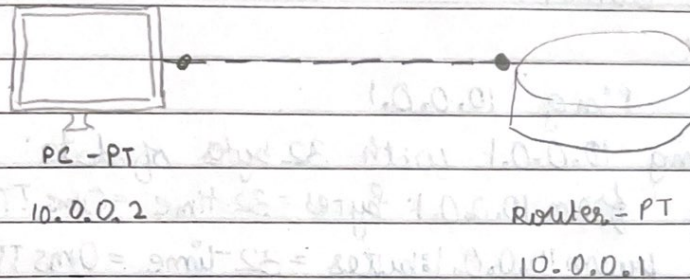 PC-PT
10.0.0.2
Router-PT
10.0.0.1